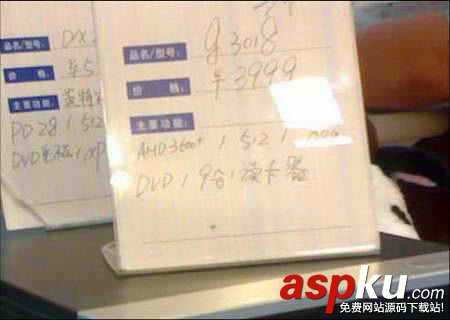 品名/型号: DX
价 格: 半5
主要功能: 英特
PD28 / 512
DVD光驱 / XP
品名/型号: g3018
价 格: 半3999
主要功能:
AMD3600+ / 512 /
DVD / 9合1读卡器
aspku.com
免费网站源码下载站!